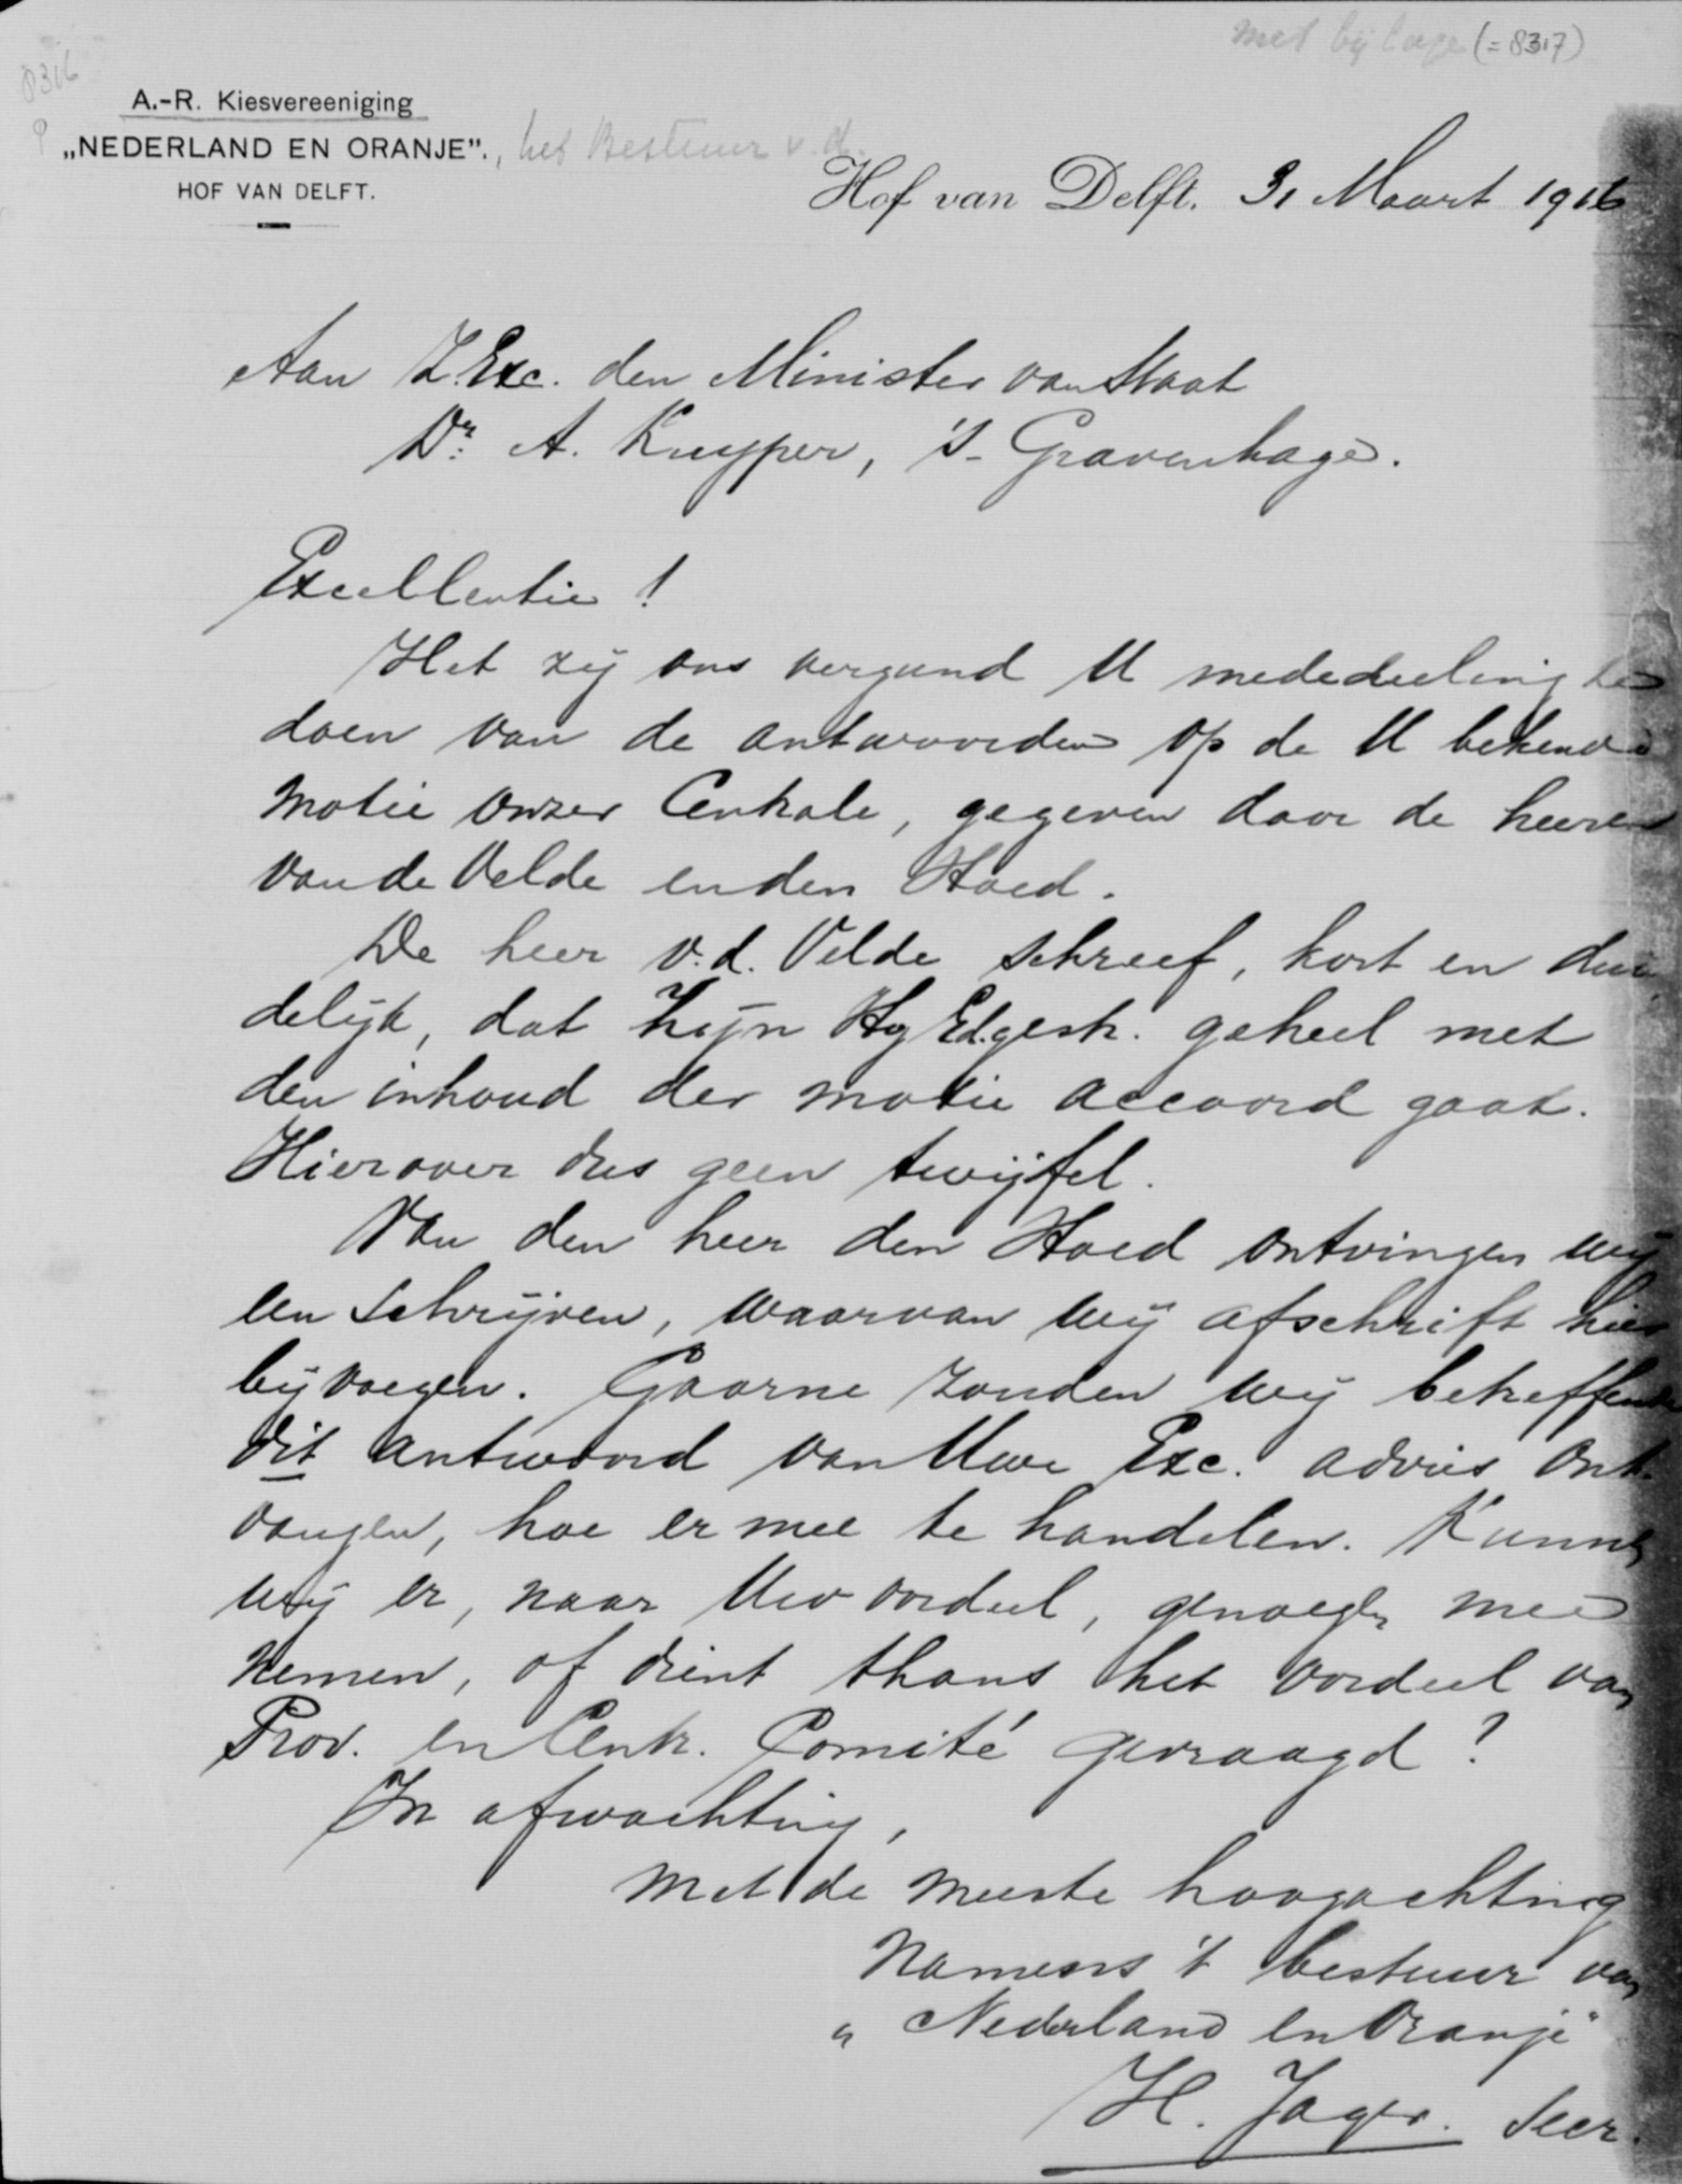 met bijlage (= 8317)
8316
A.-R. Kiesvereeniging
„NEDERLAND EN ORANJE"., het Bestuur v. d.
HOF VAN DELFT.
Hof van Delft. 31 Maart 1916
Aan Z.Exc. den Minister van Staat
Dr. A. Kuyper, 's-Gravenhage.
Excellentie!
Het zij ons vergund U mededeeling te
doen van de antwoorden op de U bekende
motie onzer Centrale, gegeven door de heeren
van de Velde en den Hoed.
De heer v.d. Velde schreef, kort en dui
delijk, dat Zijn HgEd.gestr. geheel met
den inhoud der motie accoord gaat.
Hierover dus geen twijfel.
Van den heer den Hoed ontvingen wij
een schrijven, waarvan wij afschrift hier
bijvoegen. Gaarne zouden wij betreffende
dit antwoord van Uwe Exc. advies ont-
vangen, hoe er mee te handelen. Kunnen
wij er, naar Uw oordeel, genoegen mee
nemen, of dient thans het oordeel van
Prov. en Centr. Comité gevraagd?
In afwachting,
met de meeste hoogachting
Namens 't bestuur van
„Nederland en Oranje"
H. Jager. Secr.